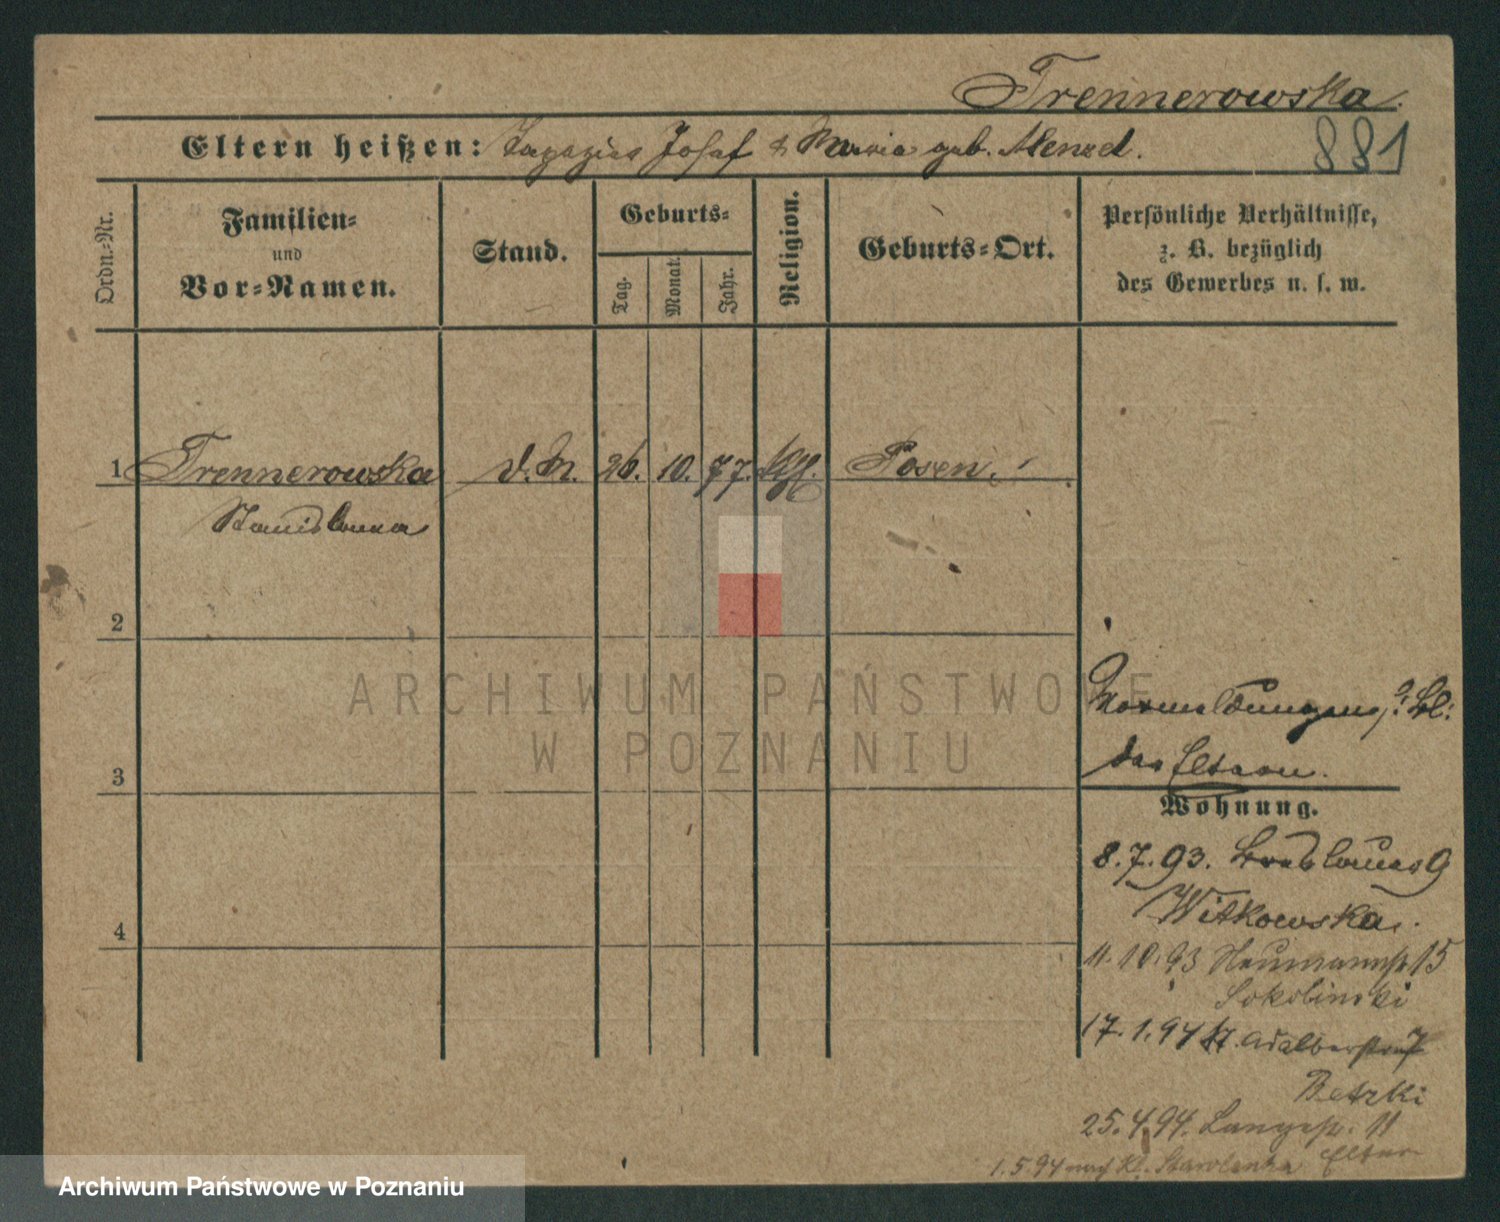 Trennerowska.
Eltern heißen: Josef & Maria geb. Menzel.
881
Ordn.-Nr.
Familien-
und
Vor-Namen.
Stand.
Geburts-
Tag.
Monat.
Jahr.
Religion.
Geburts-Ort.
Persönliche Verhältnisse,
z. B. bezüglich
des Gewerbes u. s. w.
1 Trennerowska d. M. 26. 10. 77. kth. Posen.
Stanislawa
2
3
4
ARCHIWUM PAŃSTWOWE
W POZNANIU
Vormeldungen, s. Bl:
der Eltern.
Wohnung.
8.7.93. 9
Witkowska.
11.10.93 Neumannstr 15
Sokolinski
17.1.94 Kl. Adalbertstr 7
Betzki
25.4.94. Langestr. 11
Eltern
1.5.94 nach Kl. Starolenka
Archiwum Państwowe w Poznaniu